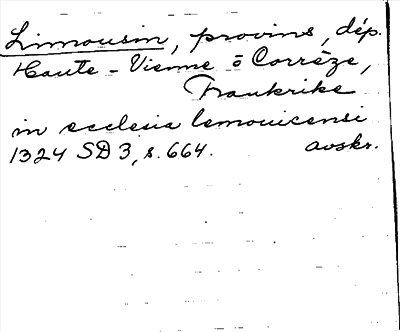 Limousin, provins, dép.
Haute-Vienne o Corrèze,
Frankrike
in ecclesia lemouicensi
1324 SD 3, s. 664. avskr.